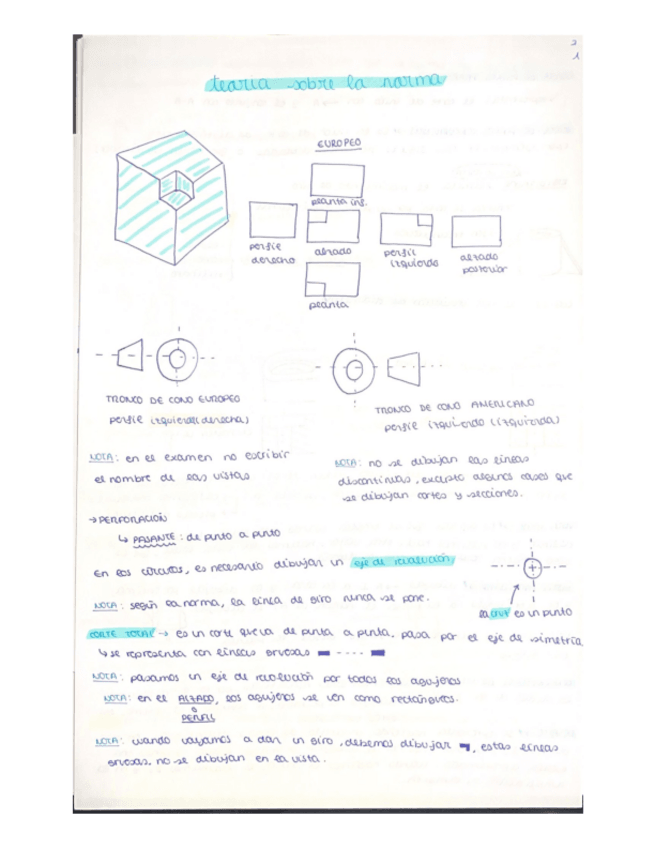 2
1
teoría sobre la norma
EUROPEO
planta inf.
perfil derecho
alzado
perfil izquierdo
alzado posterior
planta
TRONCO DE CONO EUROPEO
perfil izquierdo (derecha)
TRONCO DE CONO AMERICANO
perfil izquierdo (izquierda)
NOTA: en el examen no escribir
el nombre de las vistas
NOTA: no se dibujan las líneas
discontinuas, excepto algunos casos que
se dibujan cortes y secciones.
→ PERFORACIÓN
↳ PASANTE: de punto a punto
En los círculos, es necesario dibujar un eje de revolución
NOTA: según la norma, la línea de giro nunca se pone.
la cruz es un punto
CORTE TOTAL → es un corte que va de punta a punta, pasa por el eje de simetría
↳ se representa con líneas gruesas
NOTA: pasamos un eje de revolución por todos los agujeros
NOTA: en el ALZADO, los agujeros se ven como rectángulos.
o
PERFIL
NOTA: cuando vayamos a dar un giro, debemos dibujar , estas líneas
gruesas, no se dibujan en la vista.